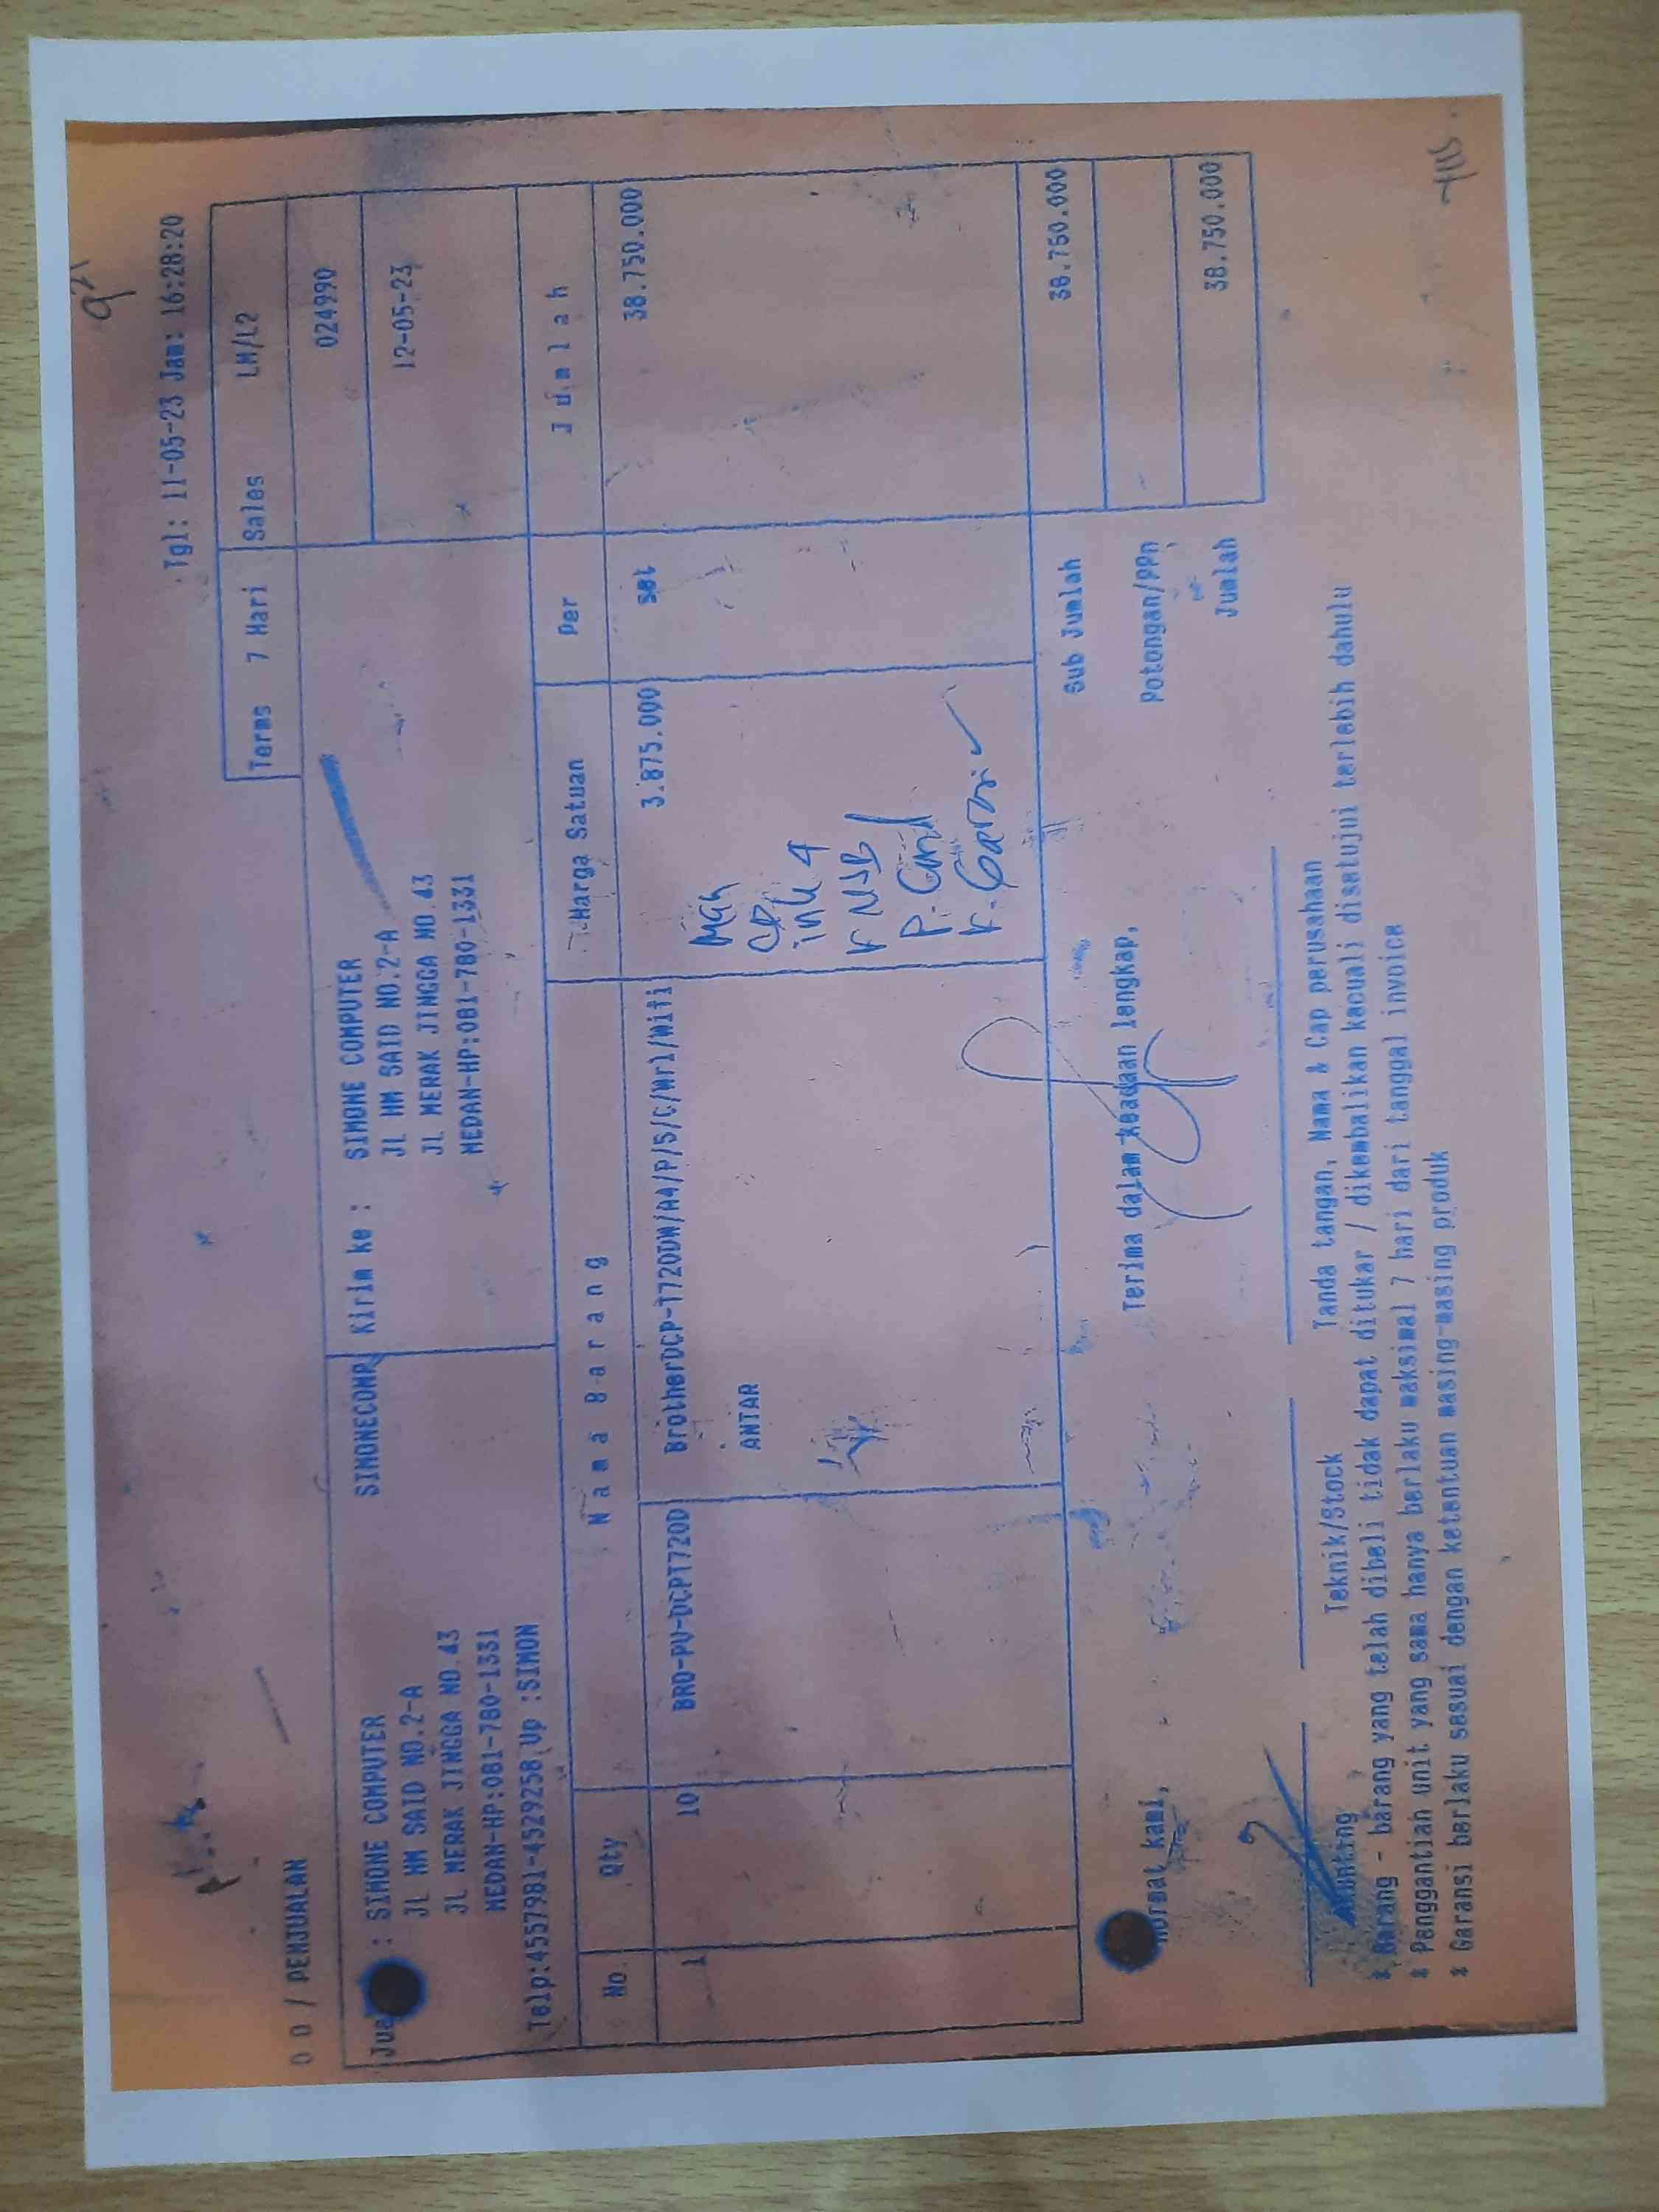 Tgl: 11-05-23 Jam: 16:28:20
Terms 7 Hari Sales LM/L2
O O / PENJUALAN
024990
12-05-23
: SIMONE COMPUTER SIMONECOMP Kirim ke : SIMONE COMPUTER
JL HM SAID NO.2-A JL HM SAID NO.2-A
JL MERAK JINGGA NO.43 JL MERAK JINGGA NO.43
MEDAN-HP:081-780-1331 MEDAN-HP:081-780-1331
Telp:4557981-4529258 Up :SIMON
No. Qty Nama Barang Harga Satuan Per Jumlah
1 10 BRO-PV-DCPT720D BrotherDCP-T720DW/A4/P/S/C/Wrl/Wifi 3.875.000 set 38.750.000
ANTAR
ink 4
K USB
P. Card
K. Garansi ✓
Sub Jumlah 38.750.000
Potongan/PPn
Jumlah 38.750.000
Hormat kami, Terima dalam keadaan lengkap,
Teknik/Stock Tanda tangan, Nama & Cap perusahaan
* Barang - barang yang telah dibeli tidak dapat ditukar / dikembalikan kecuali disetujui terlebih dahulu
* Penggantian unit yang sama hanya berlaku maksimal 7 hari dari tanggal invoice
* Garansi berlaku sesuai dengan ketentuan masing-masing produk